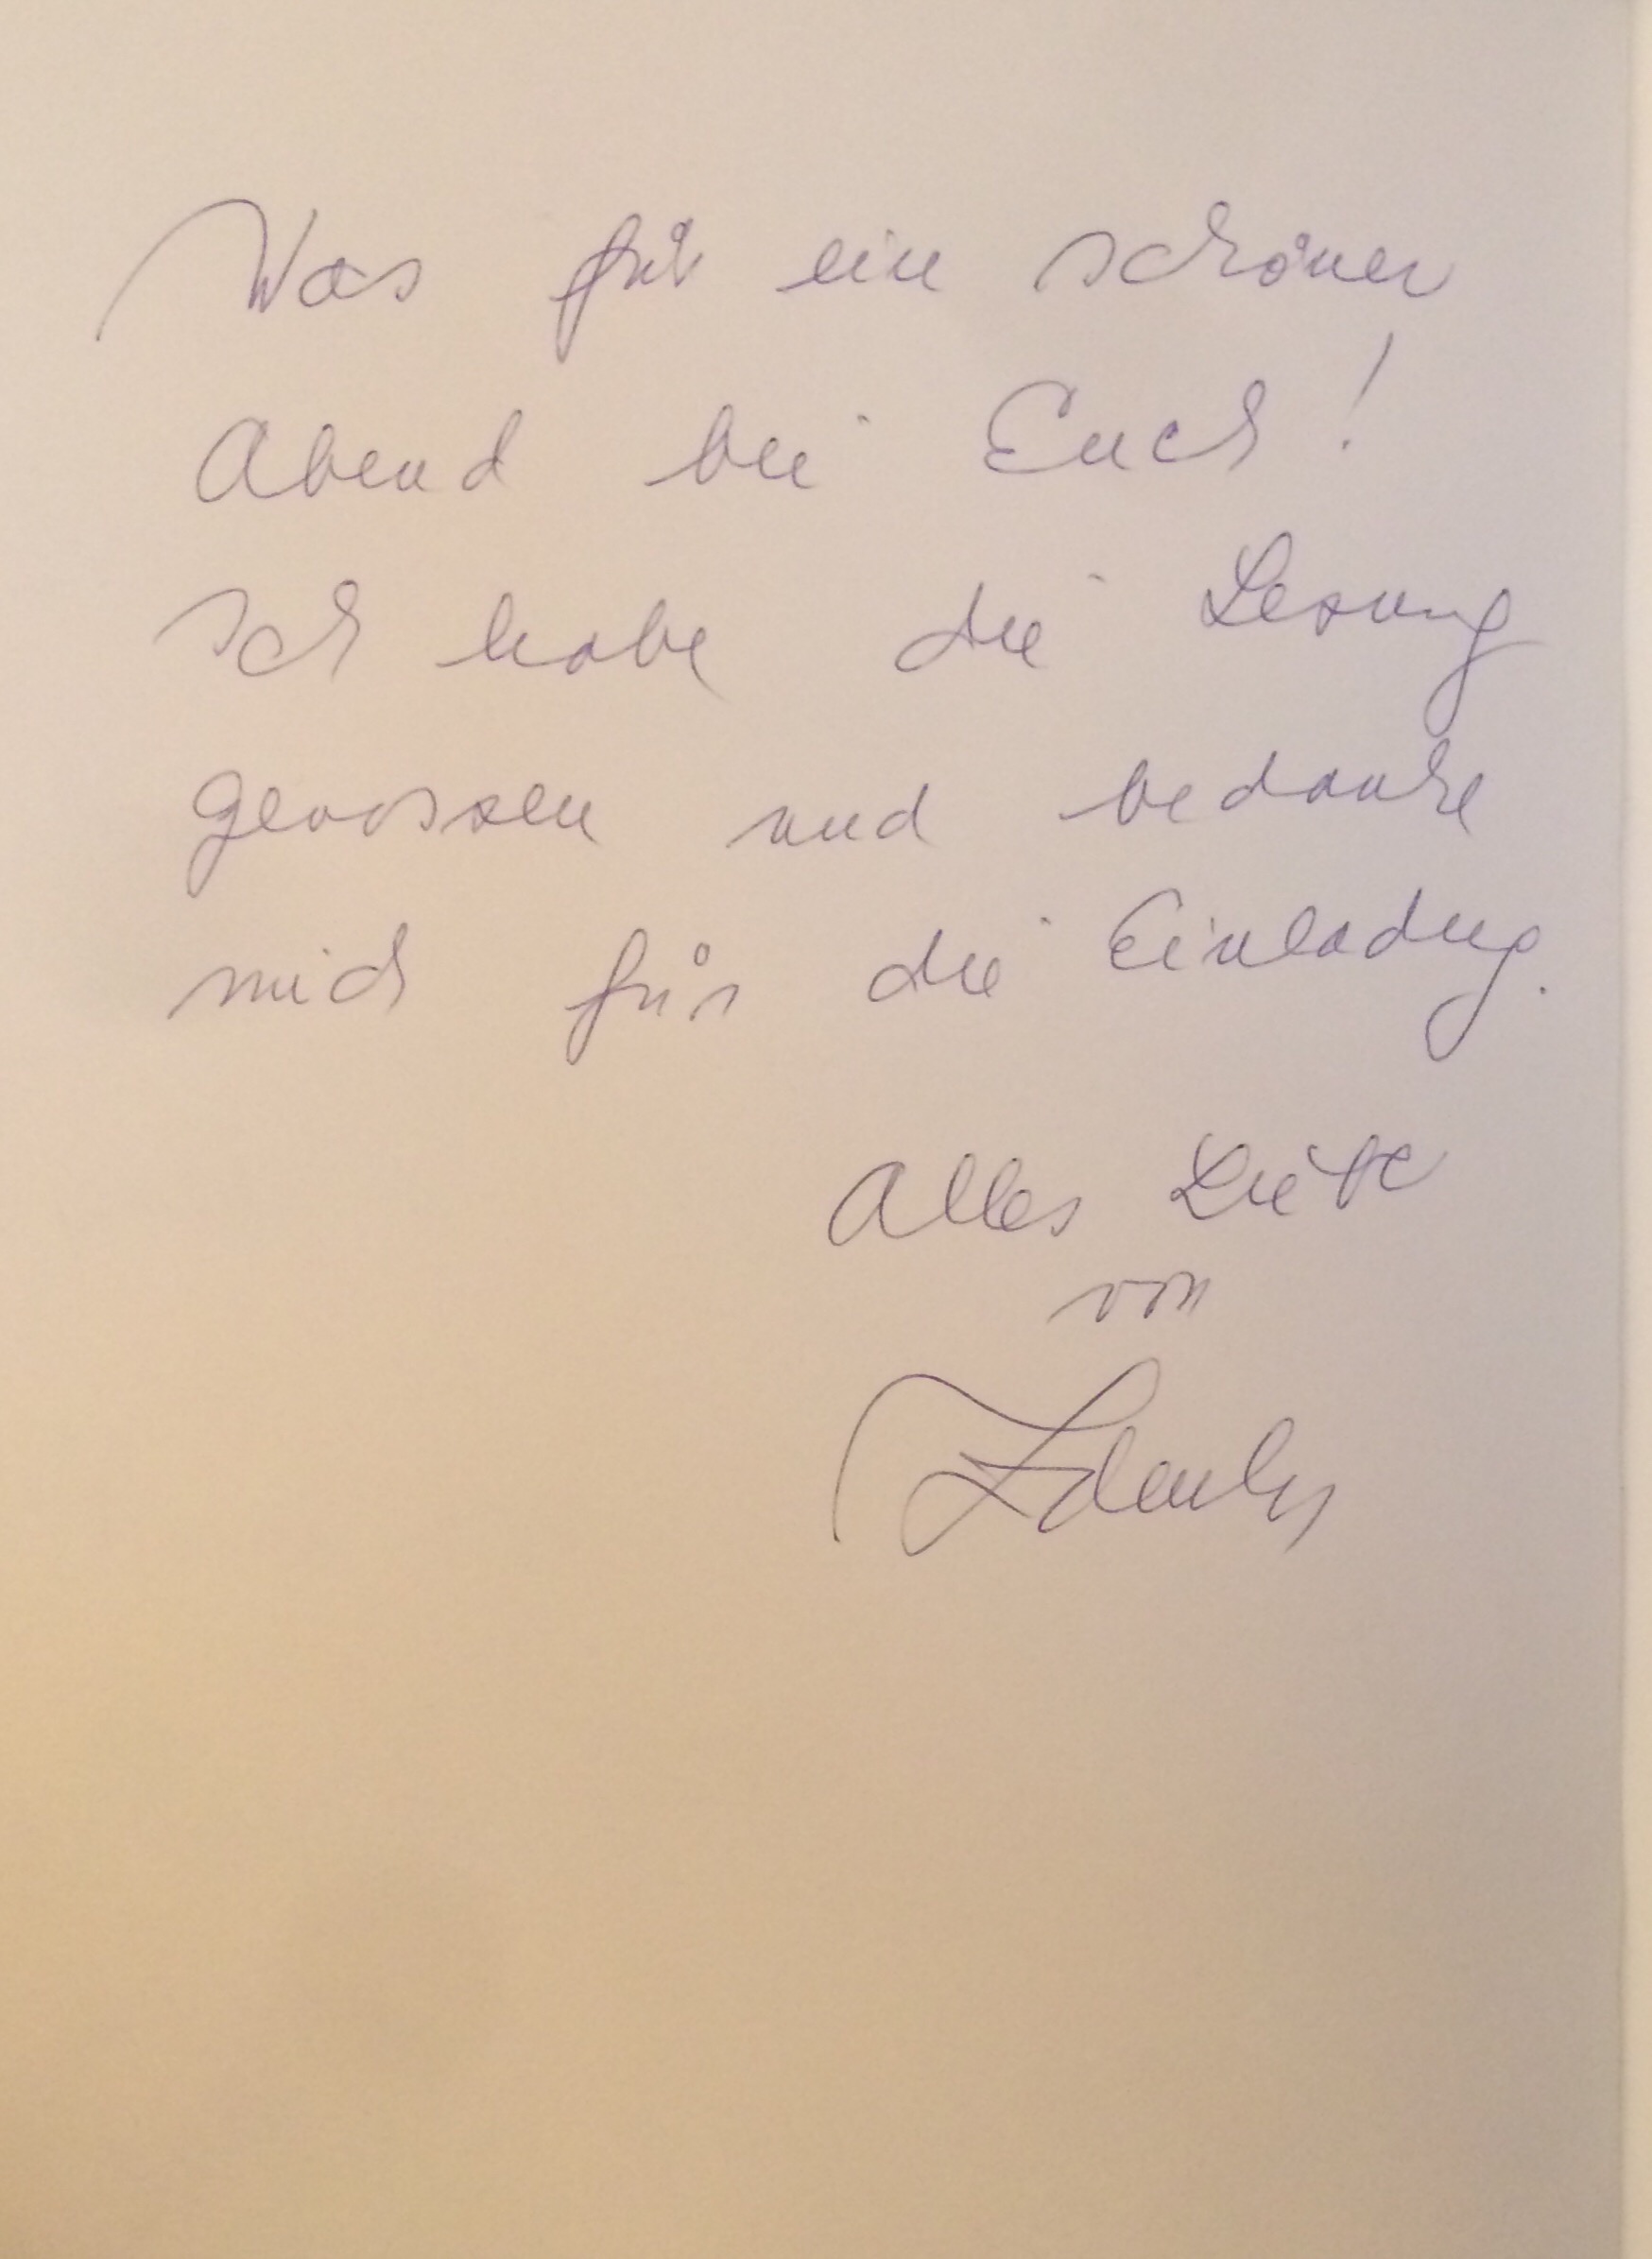 Was für ein schöner
Abend bei Euch!
Ich habe die Lesung
genossen und bedanke
mich für die Einladung.
Alles Liebe
von